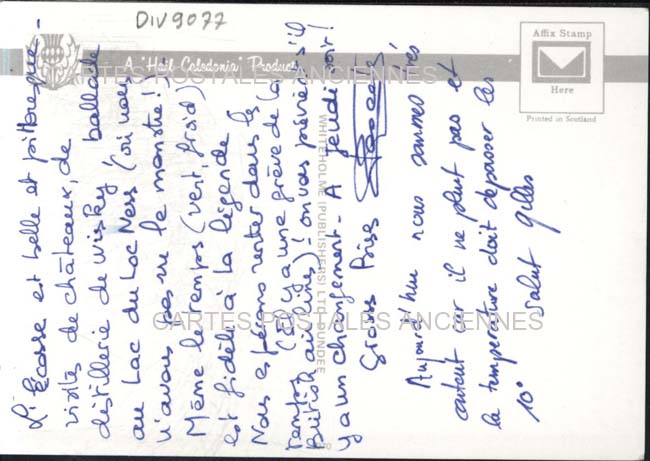 DIV9077
A "Hail Caledonia" Product
Affix Stamp
Here
Printed in Scotland
WHITEHOLME (PUBLISHERS) LTD. DUNDEE
CARTES POSTALES ANCIENNES
CARTES POSTALES ANCIENNES
L'Ecosse est belle et pittoresque -
visites de châteaux, de
distillerie de wisky, ballade
au Lac du Loc Ness (où nous
n'avons pas vu le monstre!)
Même le temps (vent, froid)
est fidèle à la légende
Nous espérons rentrer dans les
temps (il y a une grève de la
British airlines)! on vous prévient s'il
y a un changement - A jeudi soir!
Grosses Bises
Aujourd'hui nous sommes très
content car il ne pleut pas et
la temperature doit depasser les
10° salut gilles